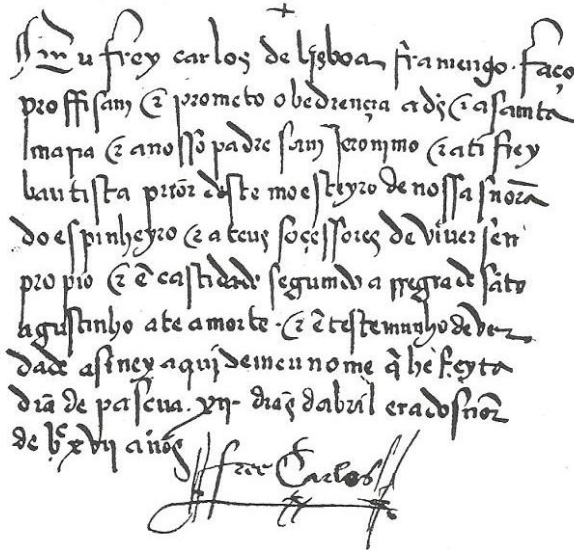 +
Eu frey carlos de lisboa framengo. faço
proffisam & prometo obediençia a ds & a santa
maria & a nosso padre sam Jeronimo & a ti frey
bautista prior deste moesteyro de nossa snora
do espinheyro & a teus soçessores de viver sen
propio & ẽ castidade segundo a rregra de sãto
agustinho ate a morte. & ẽ testemunho de ver
dade asiney aqui de meu nome q̃ he feyta
dia de pascua. xij. dias dabril era do snor
de bc xvij anos
frei Carlos